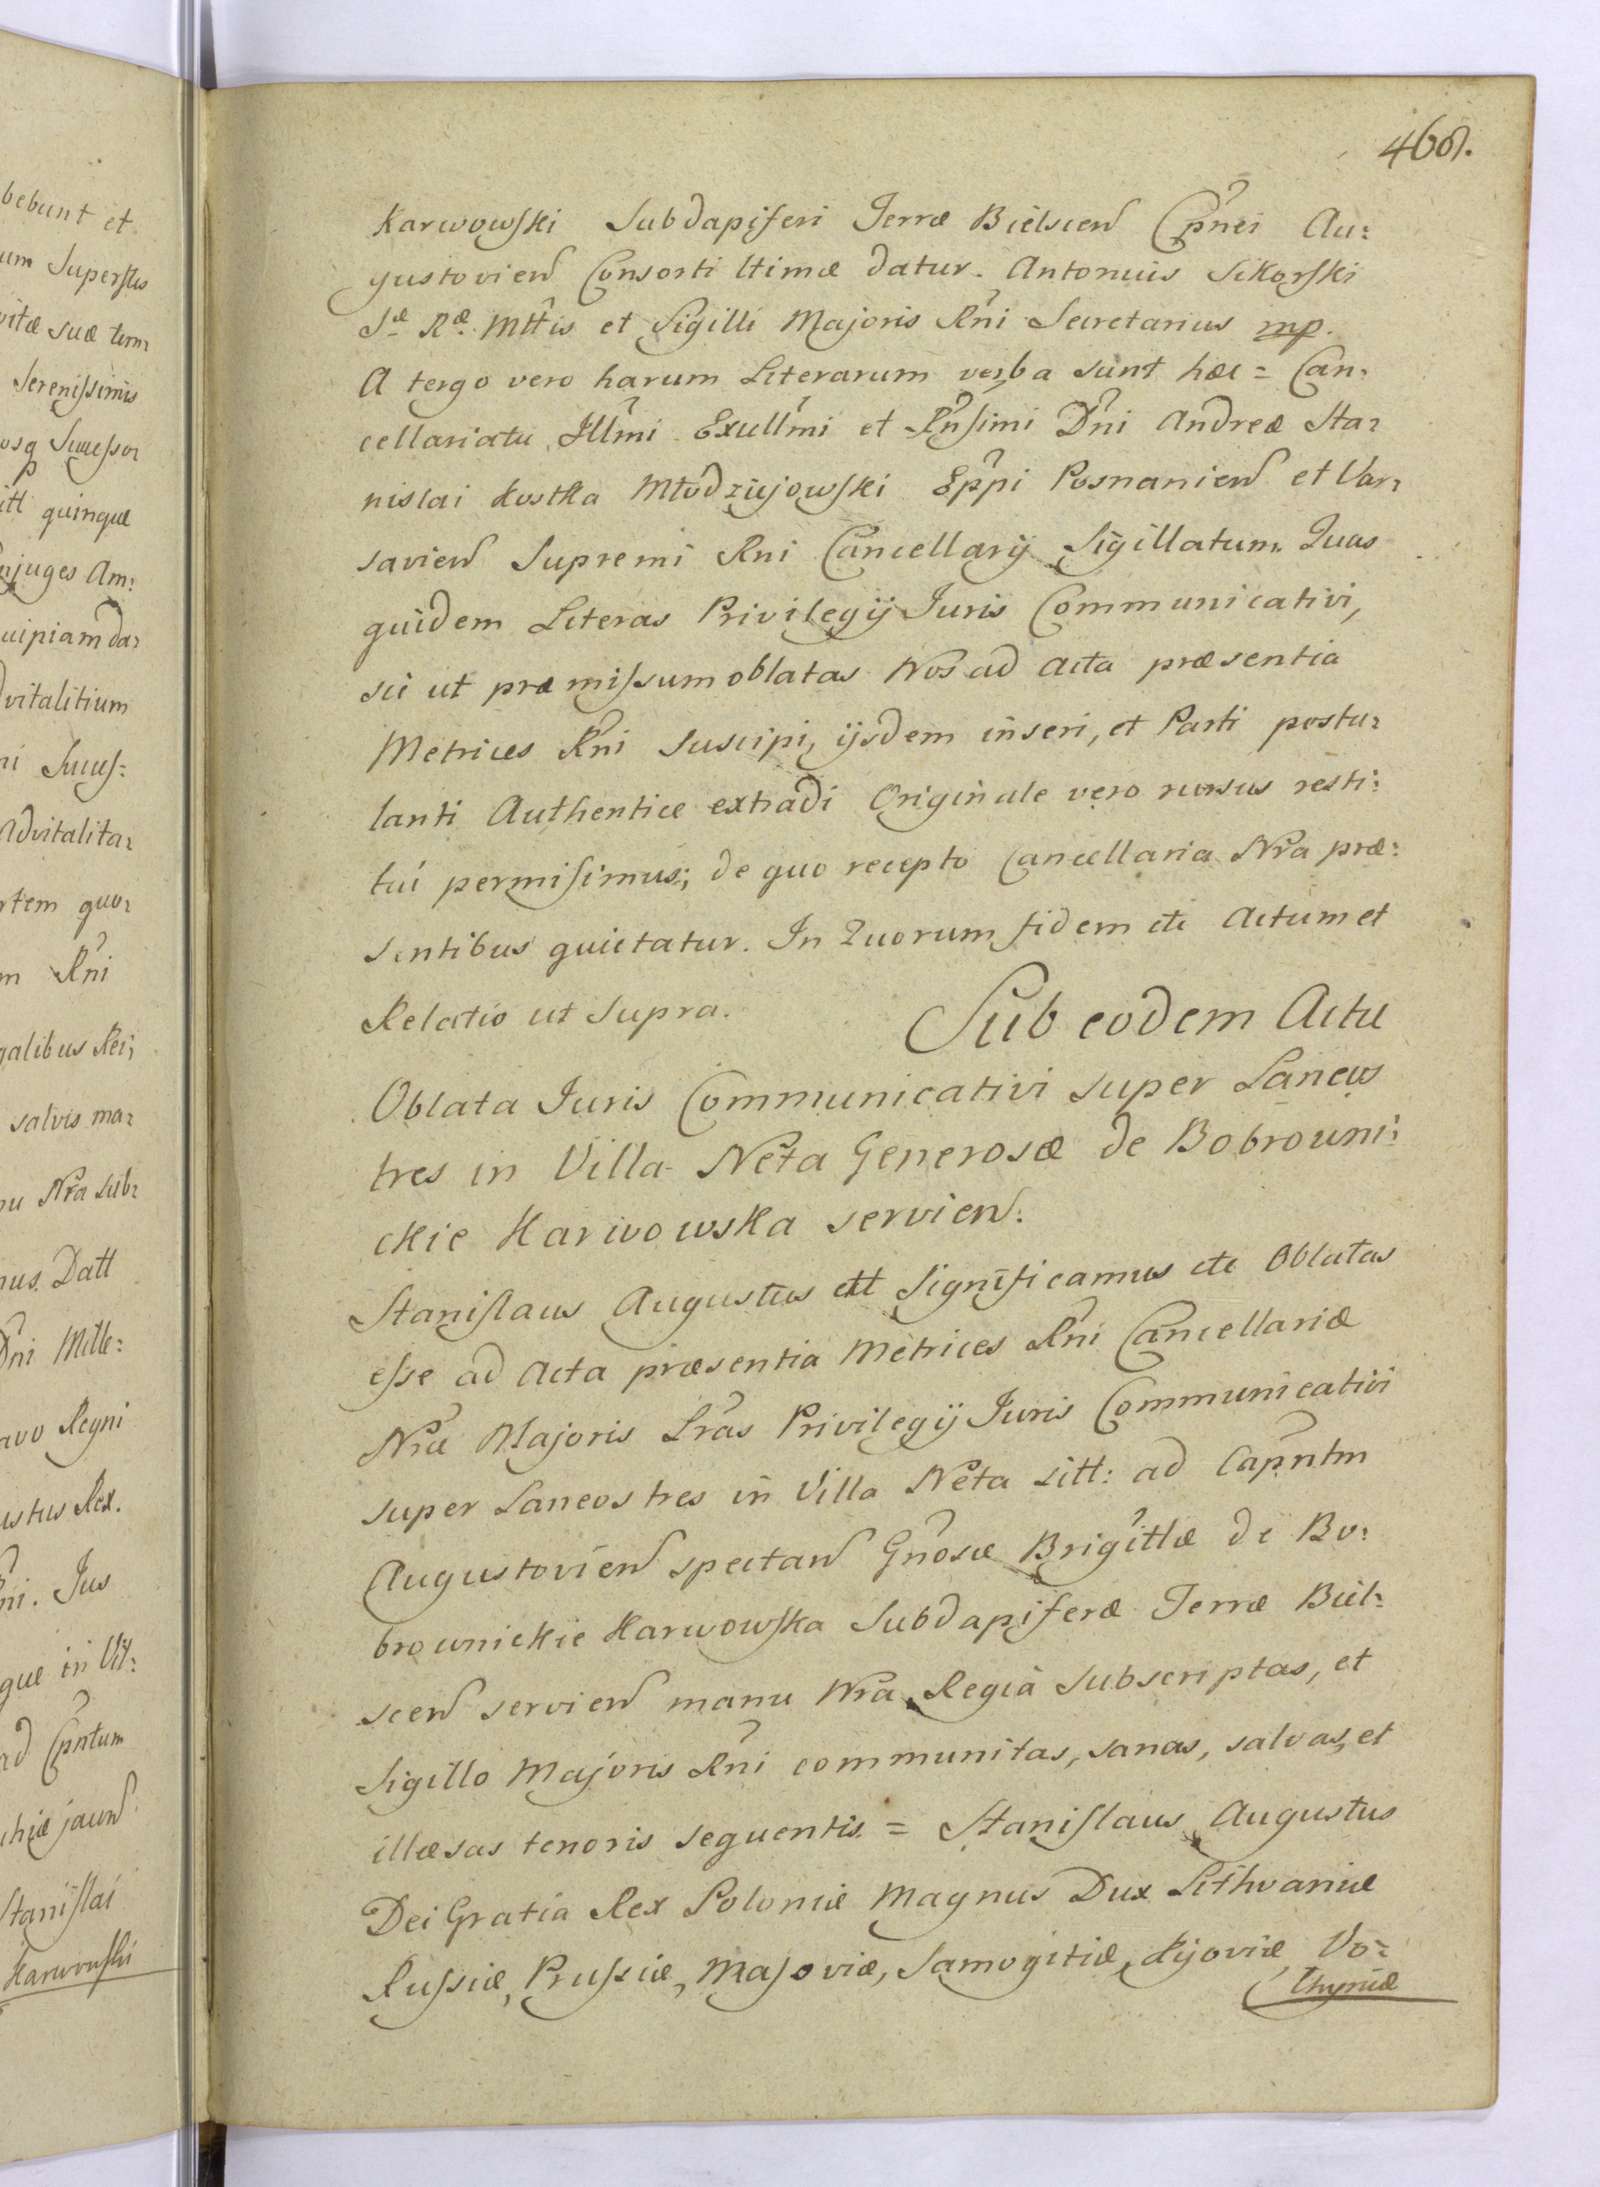 468.
Karwowski Subdapiferi Terræ Bielscen Cpnei Au:
gustovien Consorti ltimæ datur. Antonius Sikorski
Sæ Ræ Mttis et Sigilli Majoris Rni Secretarius mp.
A tergo vero harum Literarum verba sunt hæc = Can:
cellariatu Illmi Excellmi et Rnsimi Dni Andreæ Sta:
nislai Kostka Młodziejowski Eppi Posnanien et Var:
savien Supremi Rni Cancellarij Sigillatum. Quas
quidem Literas Privilegij Juris Communicativi,
sic ut præmissum oblatas Nos ad Acta præsentia
Metrices Rni Suscipi, ijsdem inseri, et Parti postu:
lanti Authentice extradi Originale vero rursus resti:
tui permisimus; de quo recepto Cancellaria Nra præ:
sentibus quietatur. In Quorum fidem etc Actum et
Relatio ut Supra.
Sub eodem Actu
Oblata Juris Communicativi super Laneos
tres in Villa Neta Generosæ de Bobrowni:
ckie Karwowska servien:
Stanislaus Augustus ett Significamus etc Oblatas
esse ad Acta præsentia Metrices Rni Cancellariæ
Nræ Majoris Lras Privilegij Juris Communicativi
super Laneos tres in Villa Neta sitt: ad Capntm
Augustovien spectan Gnosæ Brigittæ de Bo:
brownickie Karwowska Subdapiferæ Terræ Biel:
scen servien manu Nra Regia Subscriptas, et
Sigillo Majoris Rni communitas, sanas, salvas, et
illæsas tenoris sequentis = Stanislaus Augustus
Dei Gratia Rex Poloniæ Magnus Dux Lithvaniæ
Russiæ, Prussiæ, Masoviæ, Samogitiæ, Kijoviæ, Vo:
lhyniæ
bebunt et
um Superstes
vitæ suæ tem:
Serenissimis
osq Successor
itt quinque
njuges Am:
cuipiam da:
dvitalitium
ni Succes:
Advitalita:
rtem quo:
m Rni
galibus Rei:
salvis ma:
nu Nra sub:
mus. Datt
Dni Mille:
avo Regni
ustus Rex.
ni. Jus
que in Vil:
ad Cpntum
chiæ jacen
Stanislai
Karwowski